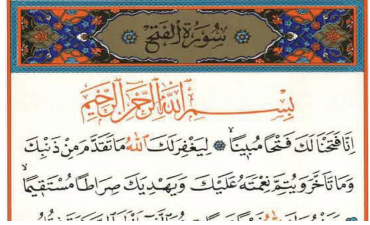 سُورَةُ الْفَتْحِ
بِسْمِ اللّٰهِ الرَّحْمٰنِ الرَّحِيمِ
اِنَّا فَتَحْنَا لَكَ فَتْحًا مُبِينًا ۙ لِيَغْفِرَ لَكَ اللّٰهُ مَا تَقَدَّمَ مِنْ ذَنْبِكَ
وَمَا تَاَخَّرَ وَيُتِمَّ نِعْمَتَهُ عَلَيْكَ وَيَهْدِيَكَ صِرَاطًا مُسْتَقِيمًا ۙ